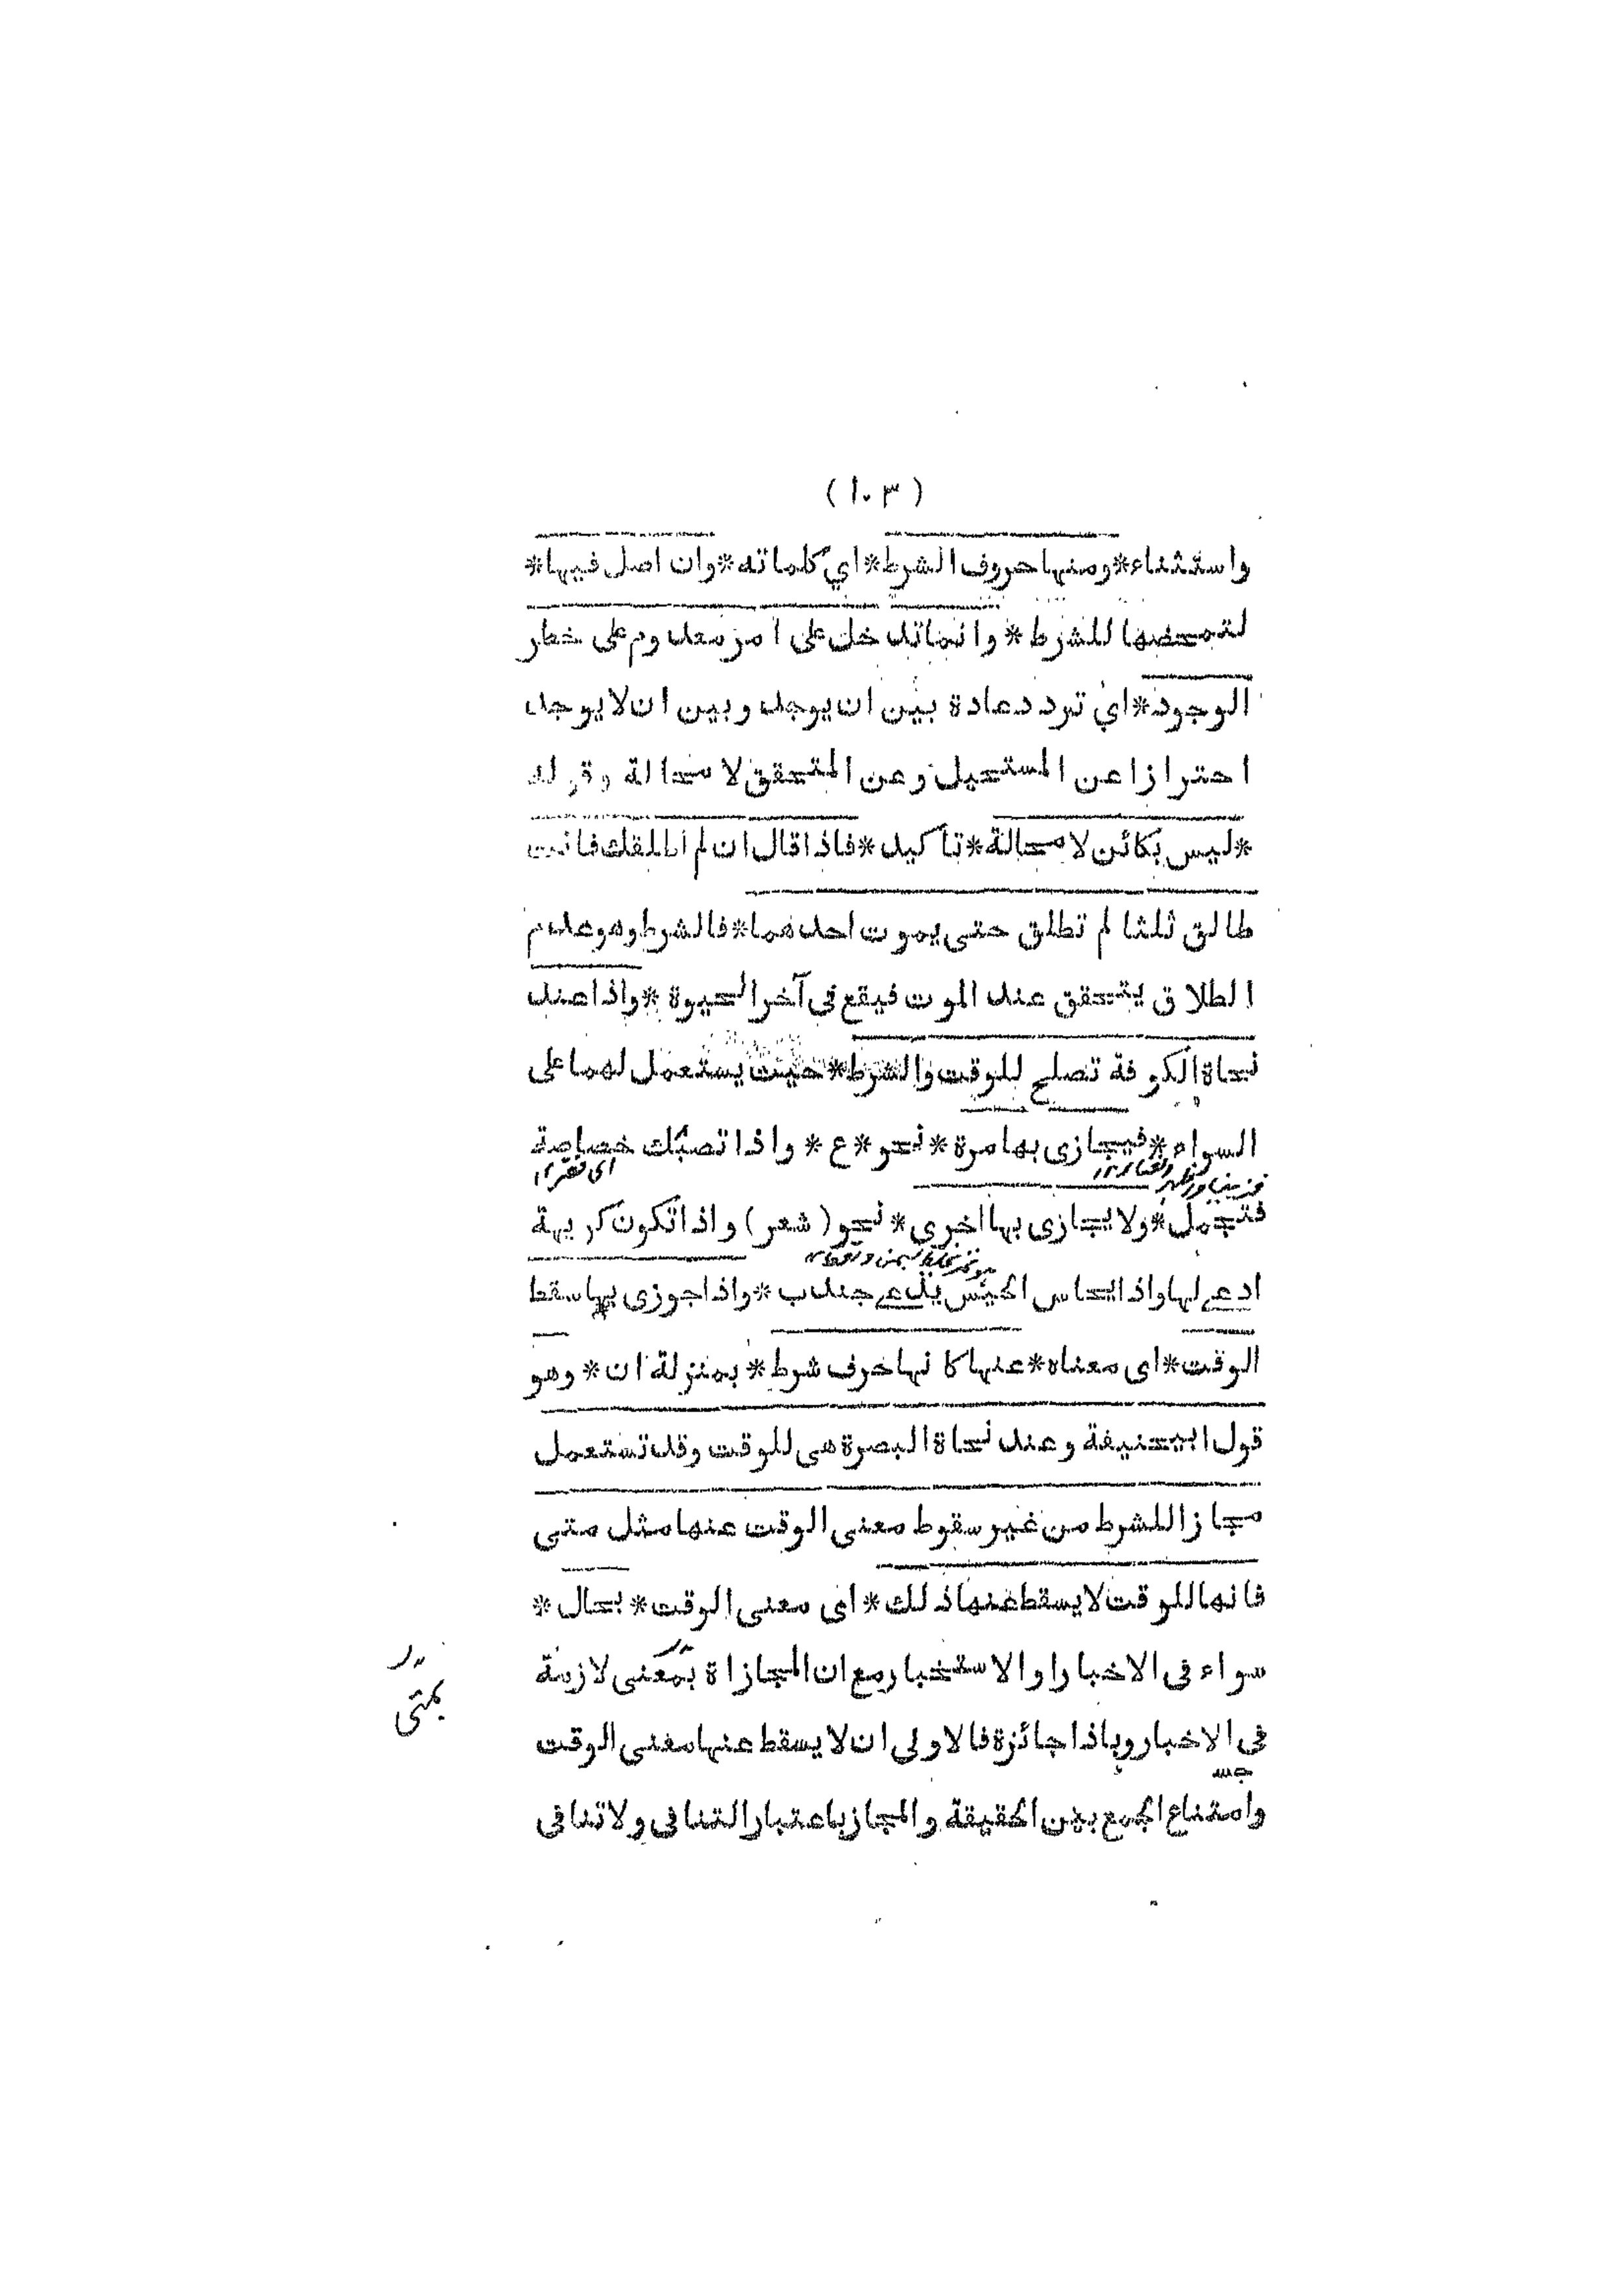 ( ١٠٣ )
واستثناء*ومنها حروف الشرط*اي كلماته*وان اصل فيها*
لتمحضها للشرط * وانما تدخل على امر معدوم على خطر
الوجود*اي تردد عادة بين ان يوجد وبين ان لا يوجد
احترازا عن المستحيل وعن المتحقق لا محالة وقوله
*ليس بكائن لا محالة*تأكيد*فاذا قال ان لم اطلقك فانت
طالق ثلثا لم تطلق حتى يموت احدهما*فالشرط وهو عدم
الطلاق يتحقق عند الموت فيقع فى آخر الحيوة*واذا عند
نحاة الكوفة تصلح للوقت والشرط*حيث يستعمل لهما على
السواء*فيجازى بها مرة*نحو*ع * واذا تصبك خصاصة
اى فقر
فتجمل*ولا يجازى بها اخري*نحو (شعر) واذا تكون كريهة
ادعے لها واذا يحاس الحيس يدعے جندب*واذا جوزى بها سقط
الوقت*اى معناه*عنها كانها حرف شرط*بمنزلة ان*وهو
قول ابيحنيفة وعند نحاة البصرة هى للوقت وقد تستعمل
مجازا للشرط من غير سقوط معنى الوقت عنها مثل متى
فانها للوقت لا يسقط عنها ذلك*اى معنى الوقت*بحال*
سواء فى الاخبار او الاستخبار مع ان المجازاة بمعنى لازمة
بمتى
فى الاخبار وباذا جائزة فالاولى ان لا يسقط عنها معنى الوقت
وامتناع الجمع بين الحقيقة والمجاز باعتبار التنافى ولا تنافى